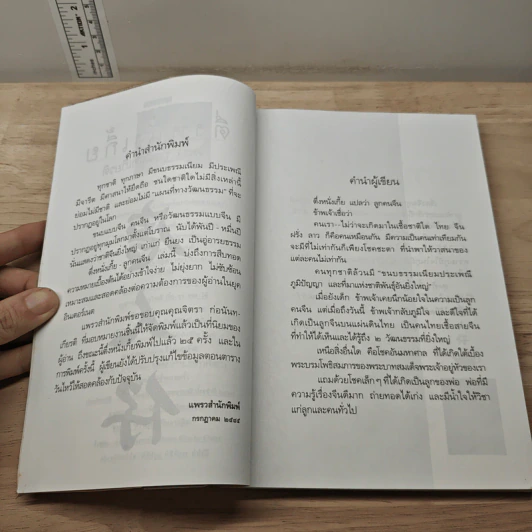 คำนำสำนักพิมพ์
ทุกชาติ ทุกภาษา มีขนบธรรมเนียม มีประเพณี
มีจารีต มีศาสนาให้ยึดถือ ชนใดชาติใดไม่มีสิ่งเหล่านี้
ย่อมไม่มีชาติ และย่อมไม่มี "แผนที่ทางวัฒนธรรม" ที่จะ
ปรากฏอยู่ในโลก
ชนแบบคนจีน หรือวัฒนธรรมแบบจีน มี
ปรากฏอยู่ทุกมุมโลกมาตั้งแต่โบราณ นับได้พันปี - หมื่นปี
นั่นแสดงว่าชาติจีนยิ่งใหญ่ เก่าแก่ ยืนยง เป็นอู่อารยธรรม
ตึ่งหนั่งเกี้ย -ลูกคนจีน เล่มนี้ มุ่งถึงการสืบทอด
ความหมายเบื้องต้นได้อย่างเข้าใจง่าย ไม่ยุ่งยาก ไม่ซับซ้อน
เหมาะสมและสอดคล้องต่อความต้องการของผู้อ่านในยุค
อินเตอร์เนต
แพรวสำนักพิมพ์ขอขอบคุณคุณจิตรา ก่อนันท-
เกียรติ ที่มอบหมายงานชิ้นนี้ให้จัดพิมพ์แล้วเป็นที่นิยมของ
ผู้อ่าน ถึงขณะนี้ตึ่งหนั่งเกี้ยพิมพ์ไปแล้ว ๒๕ ครั้ง และใน
การพิมพ์ครั้งนี้ ผู้เขียนยังได้ปรับปรุงแก้ไขข้อมูลตอนตาราง
วันไหว้ให้สอดคล้องกับปัจจุบัน
แพรวสำนักพิมพ์
กรกฎาคม ๒๕๔๕
คำนำผู้เขียน
ตึ่งหนั่งเกี้ย แปลว่า ลูกคนจีน
ข้าพเจ้าเชื่อว่า
คนเรา--ไม่ว่าจะเกิดมาในเชื้อชาติใด ไทย จีน
ฝรั่ง ลาว ก็คือคนเหมือนกัน มีความเป็นคนเท่าเทียมกัน
จะมีที่ไม่เท่ากันก็เพียงโชคชะตา ที่นำพาให้วาสนาของ
แต่ละคนไม่เท่ากัน
คนทุกชาติล้วนมี "ขนบธรรมเนียมประเพณี
ภูมิปัญญา และที่มาแห่งชาติพันธุ์อันยิ่งใหญ่"
เมื่อยังเด็ก ข้าพเจ้าเคยนึกน้อยใจในความเป็นลูก
คนจีน แต่เมื่อถึงวันนี้ ข้าพเจ้ากลับภูมิใจ และดีใจที่ได้
เกิดเป็นลูกจีนบนแผ่นดินไทย เป็นคนไทยเชื้อสายจีน
ที่ทำให้ได้เห็นและได้รู้ถึง ๒ วัฒนธรรมที่ยิ่งใหญ่
เหนือสิ่งอื่นใด คือโชคอันมหาศาล ที่ได้เกิดใต้เบื้อง
พระบรมโพธิสมภารของพระบาทสมเด็จพระเจ้าอยู่หัวของเรา
แถมด้วยโชคเล็กๆ ที่ได้เกิดเป็นลูกของพ่อ พ่อที่มี
ความรู้เรื่องจีนดีมาก ถ่ายทอดได้เก่ง และมีน้ำใจให้วิชา
แก่ลูกและคนทั่วไป
2
1